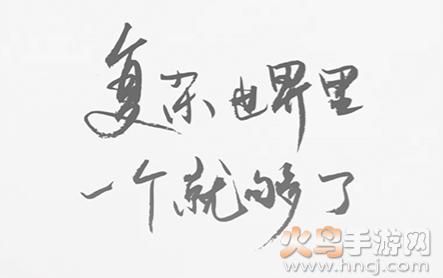 复杂世界里
一个就够了
火鸟手游网
www.hncj.com